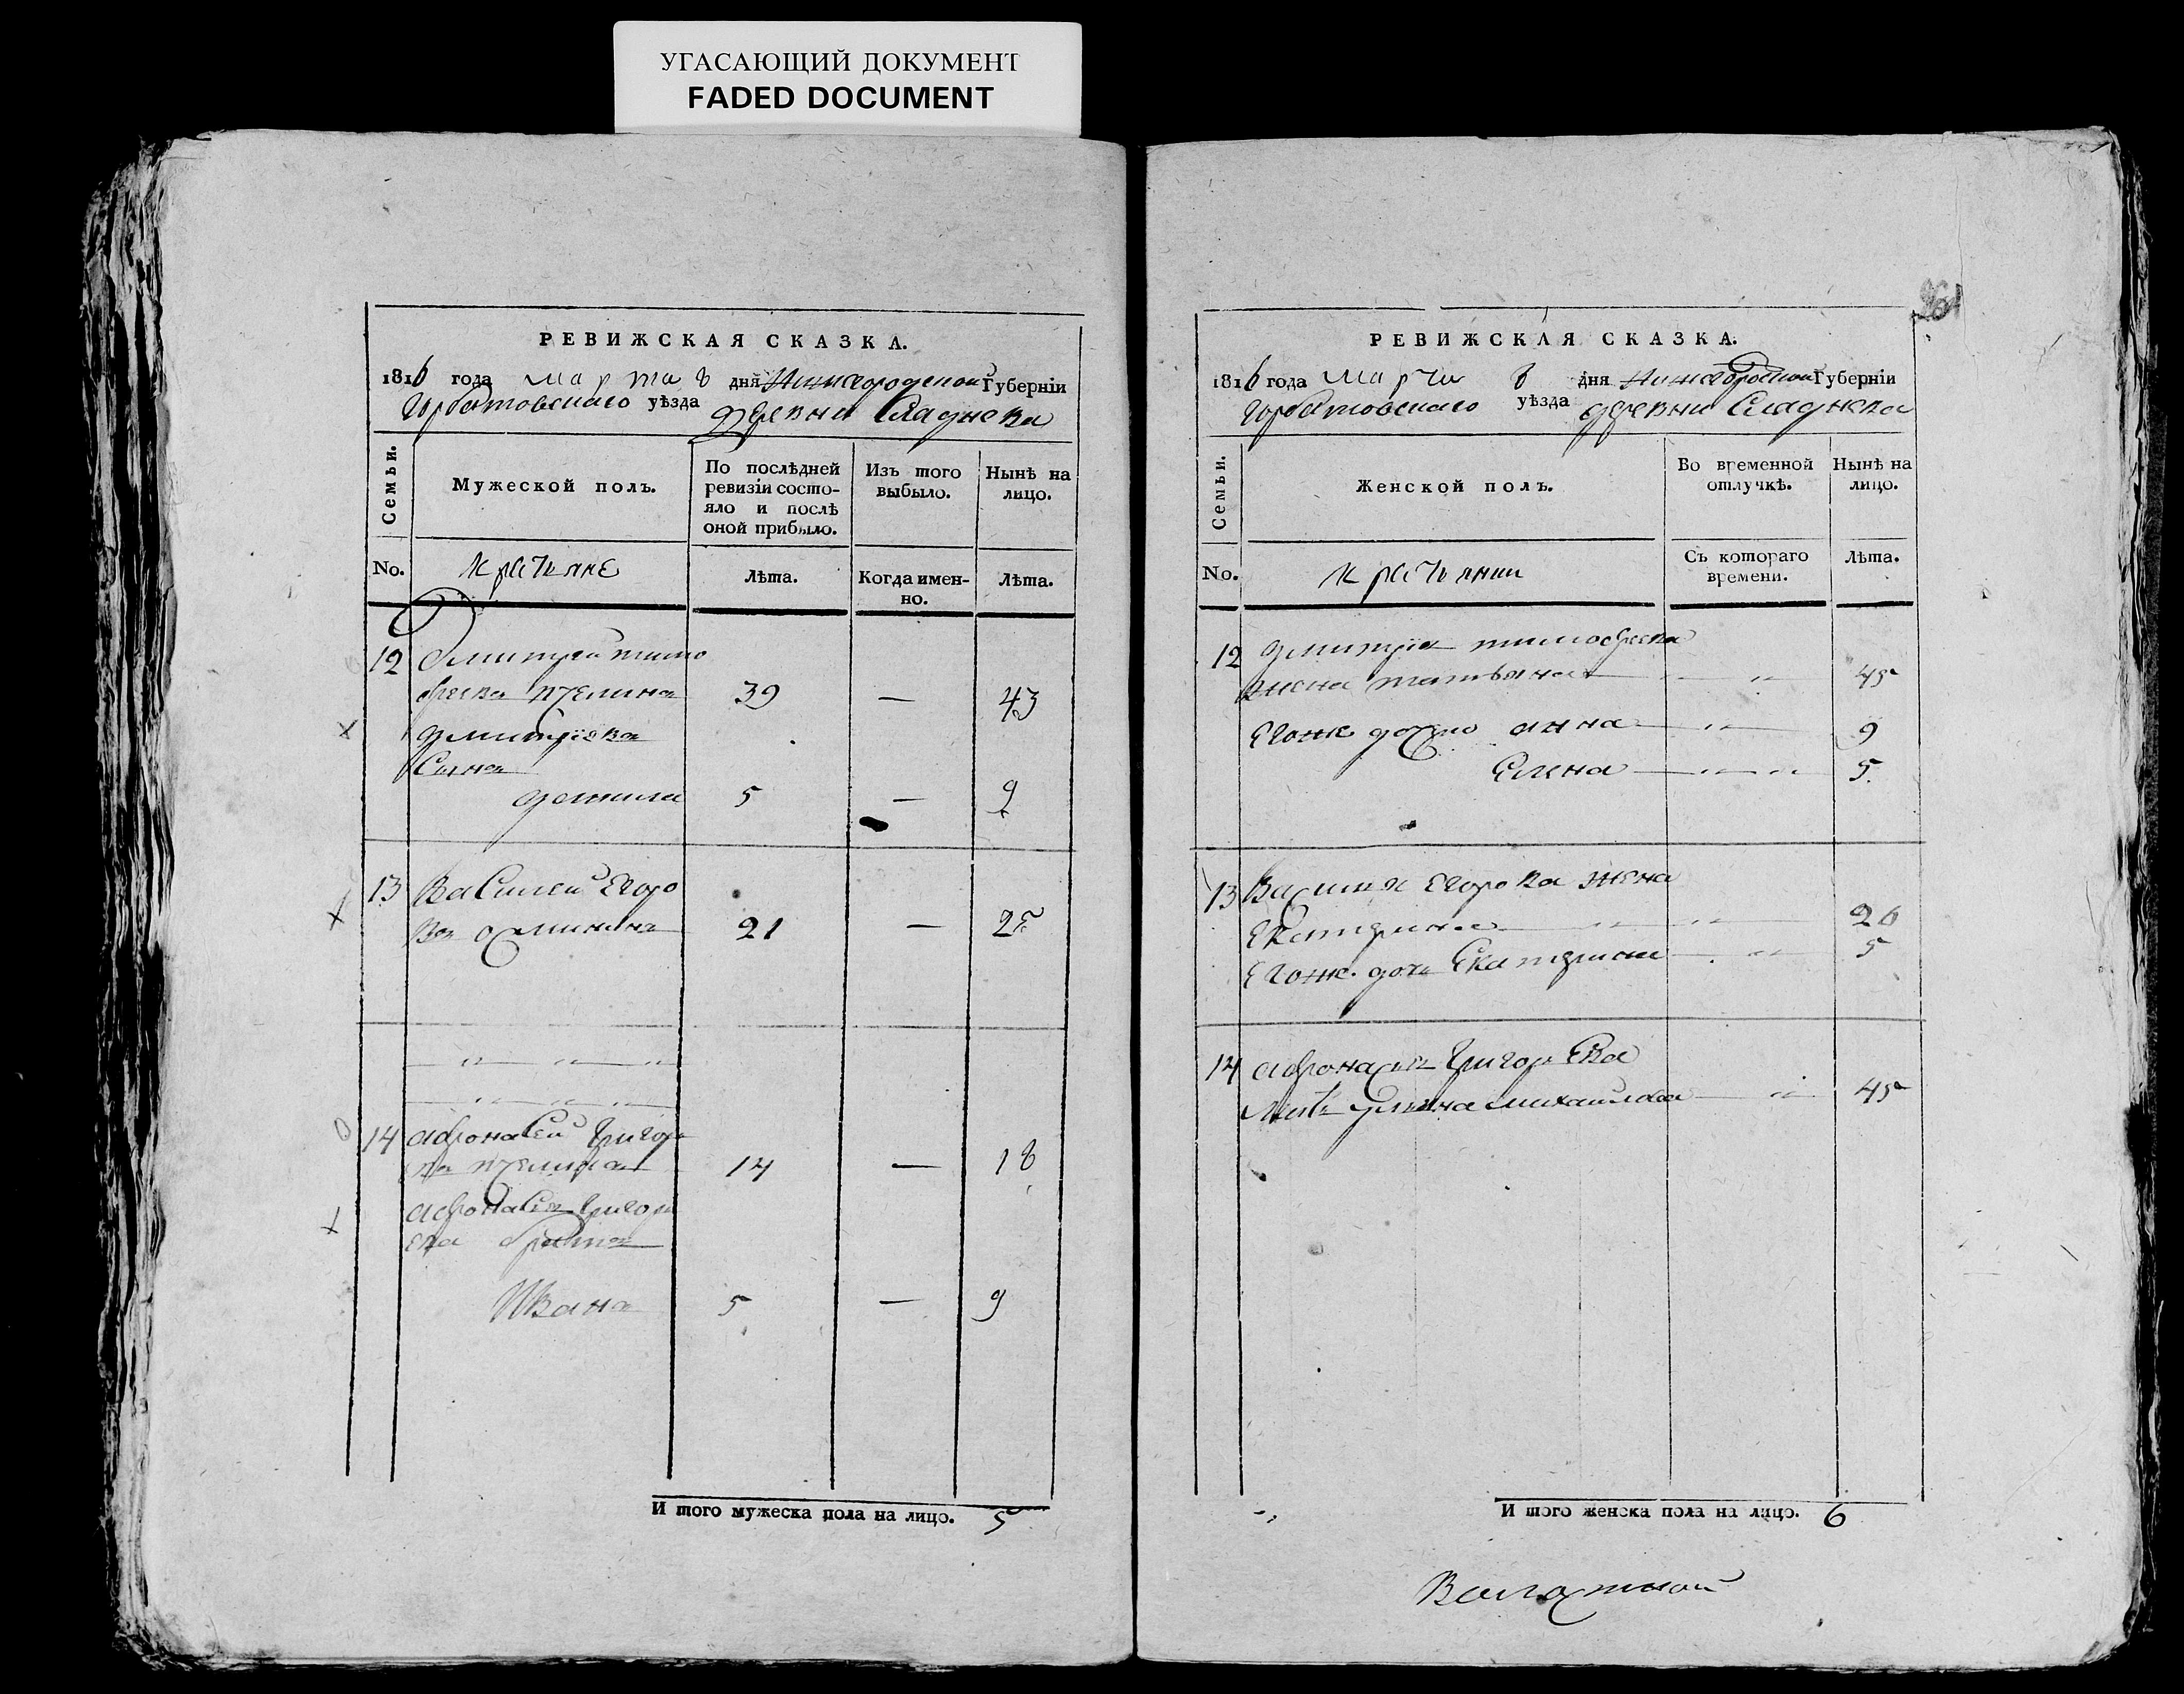 УГАСАЮЩИЙ ДОКУМЕНТ
FADED DOCUMENT
РЕВИЖСКАЯ СКАЗКА.
1816 года марта 8 дня Нижегородской Губернїи
Горбатовскаго уѣзда деревни Сладнева
Семьи.
Мужеской полъ.
По послѣдней
ревизїи состо-
яло и послѣ
оной прибыло.
Изъ того
выбыло.
Нынѣ на
лицо.
No.
крестьяне
Лѣта.
Когда имен-
но.
Лѣта.
12 Дмитрей тимо
феева 39 — 43
дмитриева
Сынъ
данила 5 — 9
13 Василей Егоро
въ 21 — 25
14 афонасей Григорь
14 — 18
афонасья Григорь
ева братъ
Иванъ 5 — 9
И того мужеска пола на лицо. 5
РЕВИЖСКАЯ СКАЗКА.
1816 года марта 8 дня Нижегородской Губернїи
Горбатовскаго уѣзда деревни Сладнева
Семьи.
Женской полъ.
Во временной
отлучкѣ.
Нынѣ на
лицо.
No.
крестьянки
Съ котораго
времени.
Лѣта.
12 дмитрия тимофеева
жена татьяна 45
Егоже дочь анна 9
Елена 5
13 Василья Егорова жена
Екатерина 26
Егоже дочь Екатерина 5
14 афонасья Григорьева
мать михайлова 45
И того женска пола на лицо. 6